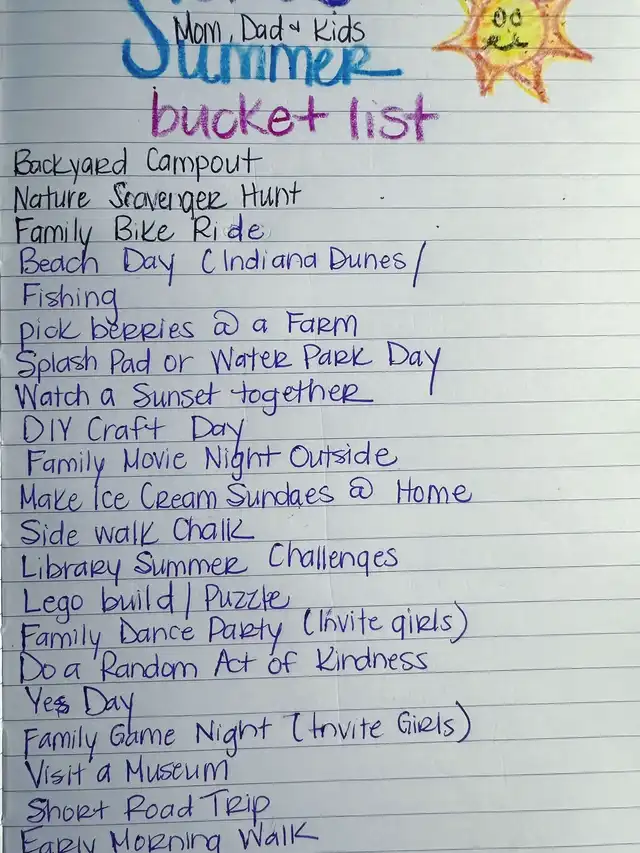 Mom, Dad & Kids
Summer
bucket list
Backyard Campout
Nature Scavenger Hunt
Family Bike Ride
Beach Day (Indiana Dunes/
Fishing
pick berries @ a Farm
Splash Pad or Water Park Day
Watch a Sunset together
DIY Craft Day
Family Movie Night Outside
Make Ice Cream Sundaes @ Home
Side walk Chalk
Library Summer Challenges
Lego build / Puzzle
Family Dance Party (Invite girls)
Do a Random Act of Kindness
Yes Day
Family Game Night (Invite Girls)
Visit a Museum
Short Road Trip
Early Morning Walk